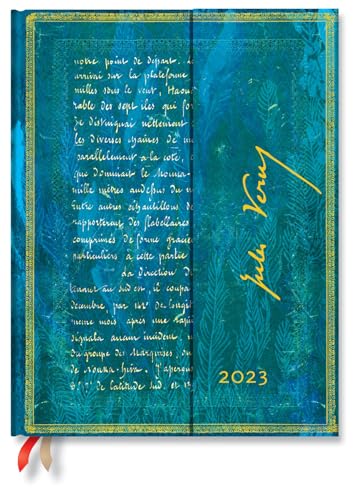 notre point de départ. Le
arrivai sur la plateforme
milles sous le vent, Haoua
rable des sept îles qui for
Je distinguai nettement
les diverses chaînes de mo
parallèlement à la côte,
que dominait le Mouna-
mille mètres audessus du ni
Entre autres échantillons de
rapportèrent des flabellaires
comprimés de forme gracieu
particuliers à cette partie
La direction du
tenant au sud est, il coupa
décembre, par 142° de longit
meme mois après une rapi
signala aucun incident,
du groupe des Marquises,
de Nouka-hiva. J'aperçus
de latitude sud, et 13
Jules Verne
2023